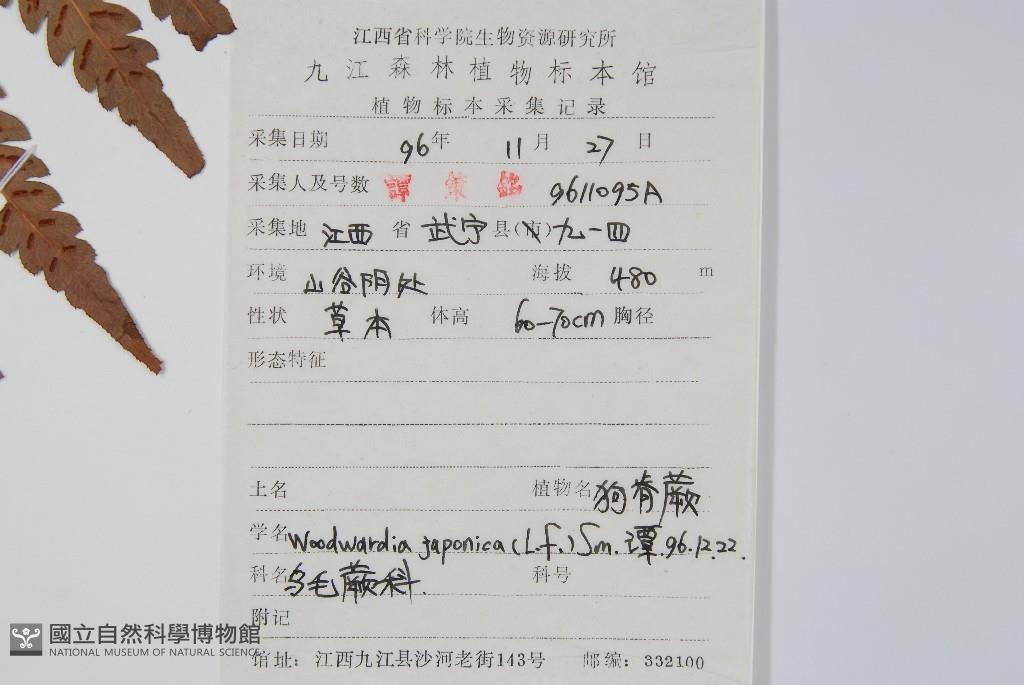 江西省科学院生物资源研究所
九江森林植物标本馆
植物标本采集记录
采集日期 96年 11月 27日
采集人及号数 譚策铭 9611095A
采集地 江西省武宁县(市)九一四
环境 山谷阴处 海拔 480 m
性状 草本 体高 60-70cm 胸径
形态特征
土名 植物名 狗脊蕨
学名 Woodwardia japonica (L.f.) Sm. 谭.96.12.22.
科名 乌毛蕨科. 科号
附记
國立自然科學博物館
NATIONAL MUSEUM OF NATURAL SCIENCE
馆址：江西九江县沙河老街143号 邮编：332100